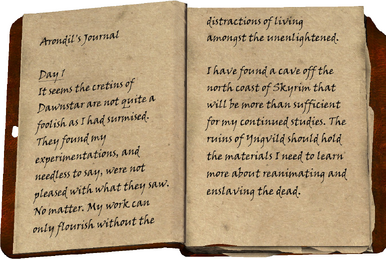 Arondil's Journal
Day 1
It seems the cretins of
Dawnstar are not quite a
foolish as I had surmised.
They found my
experimentations, and
needless to say, were not
pleased with what they saw.
No matter. My work can
only flourish without the
distractions of living
amongst the unenlightened.
I have found a cave off the
north coast of Skyrim that
will be more than sufficient
for my continued studies. The
ruins of Yngvild should hold
the materials I need to learn
more about reanimating and
enslaving the dead.